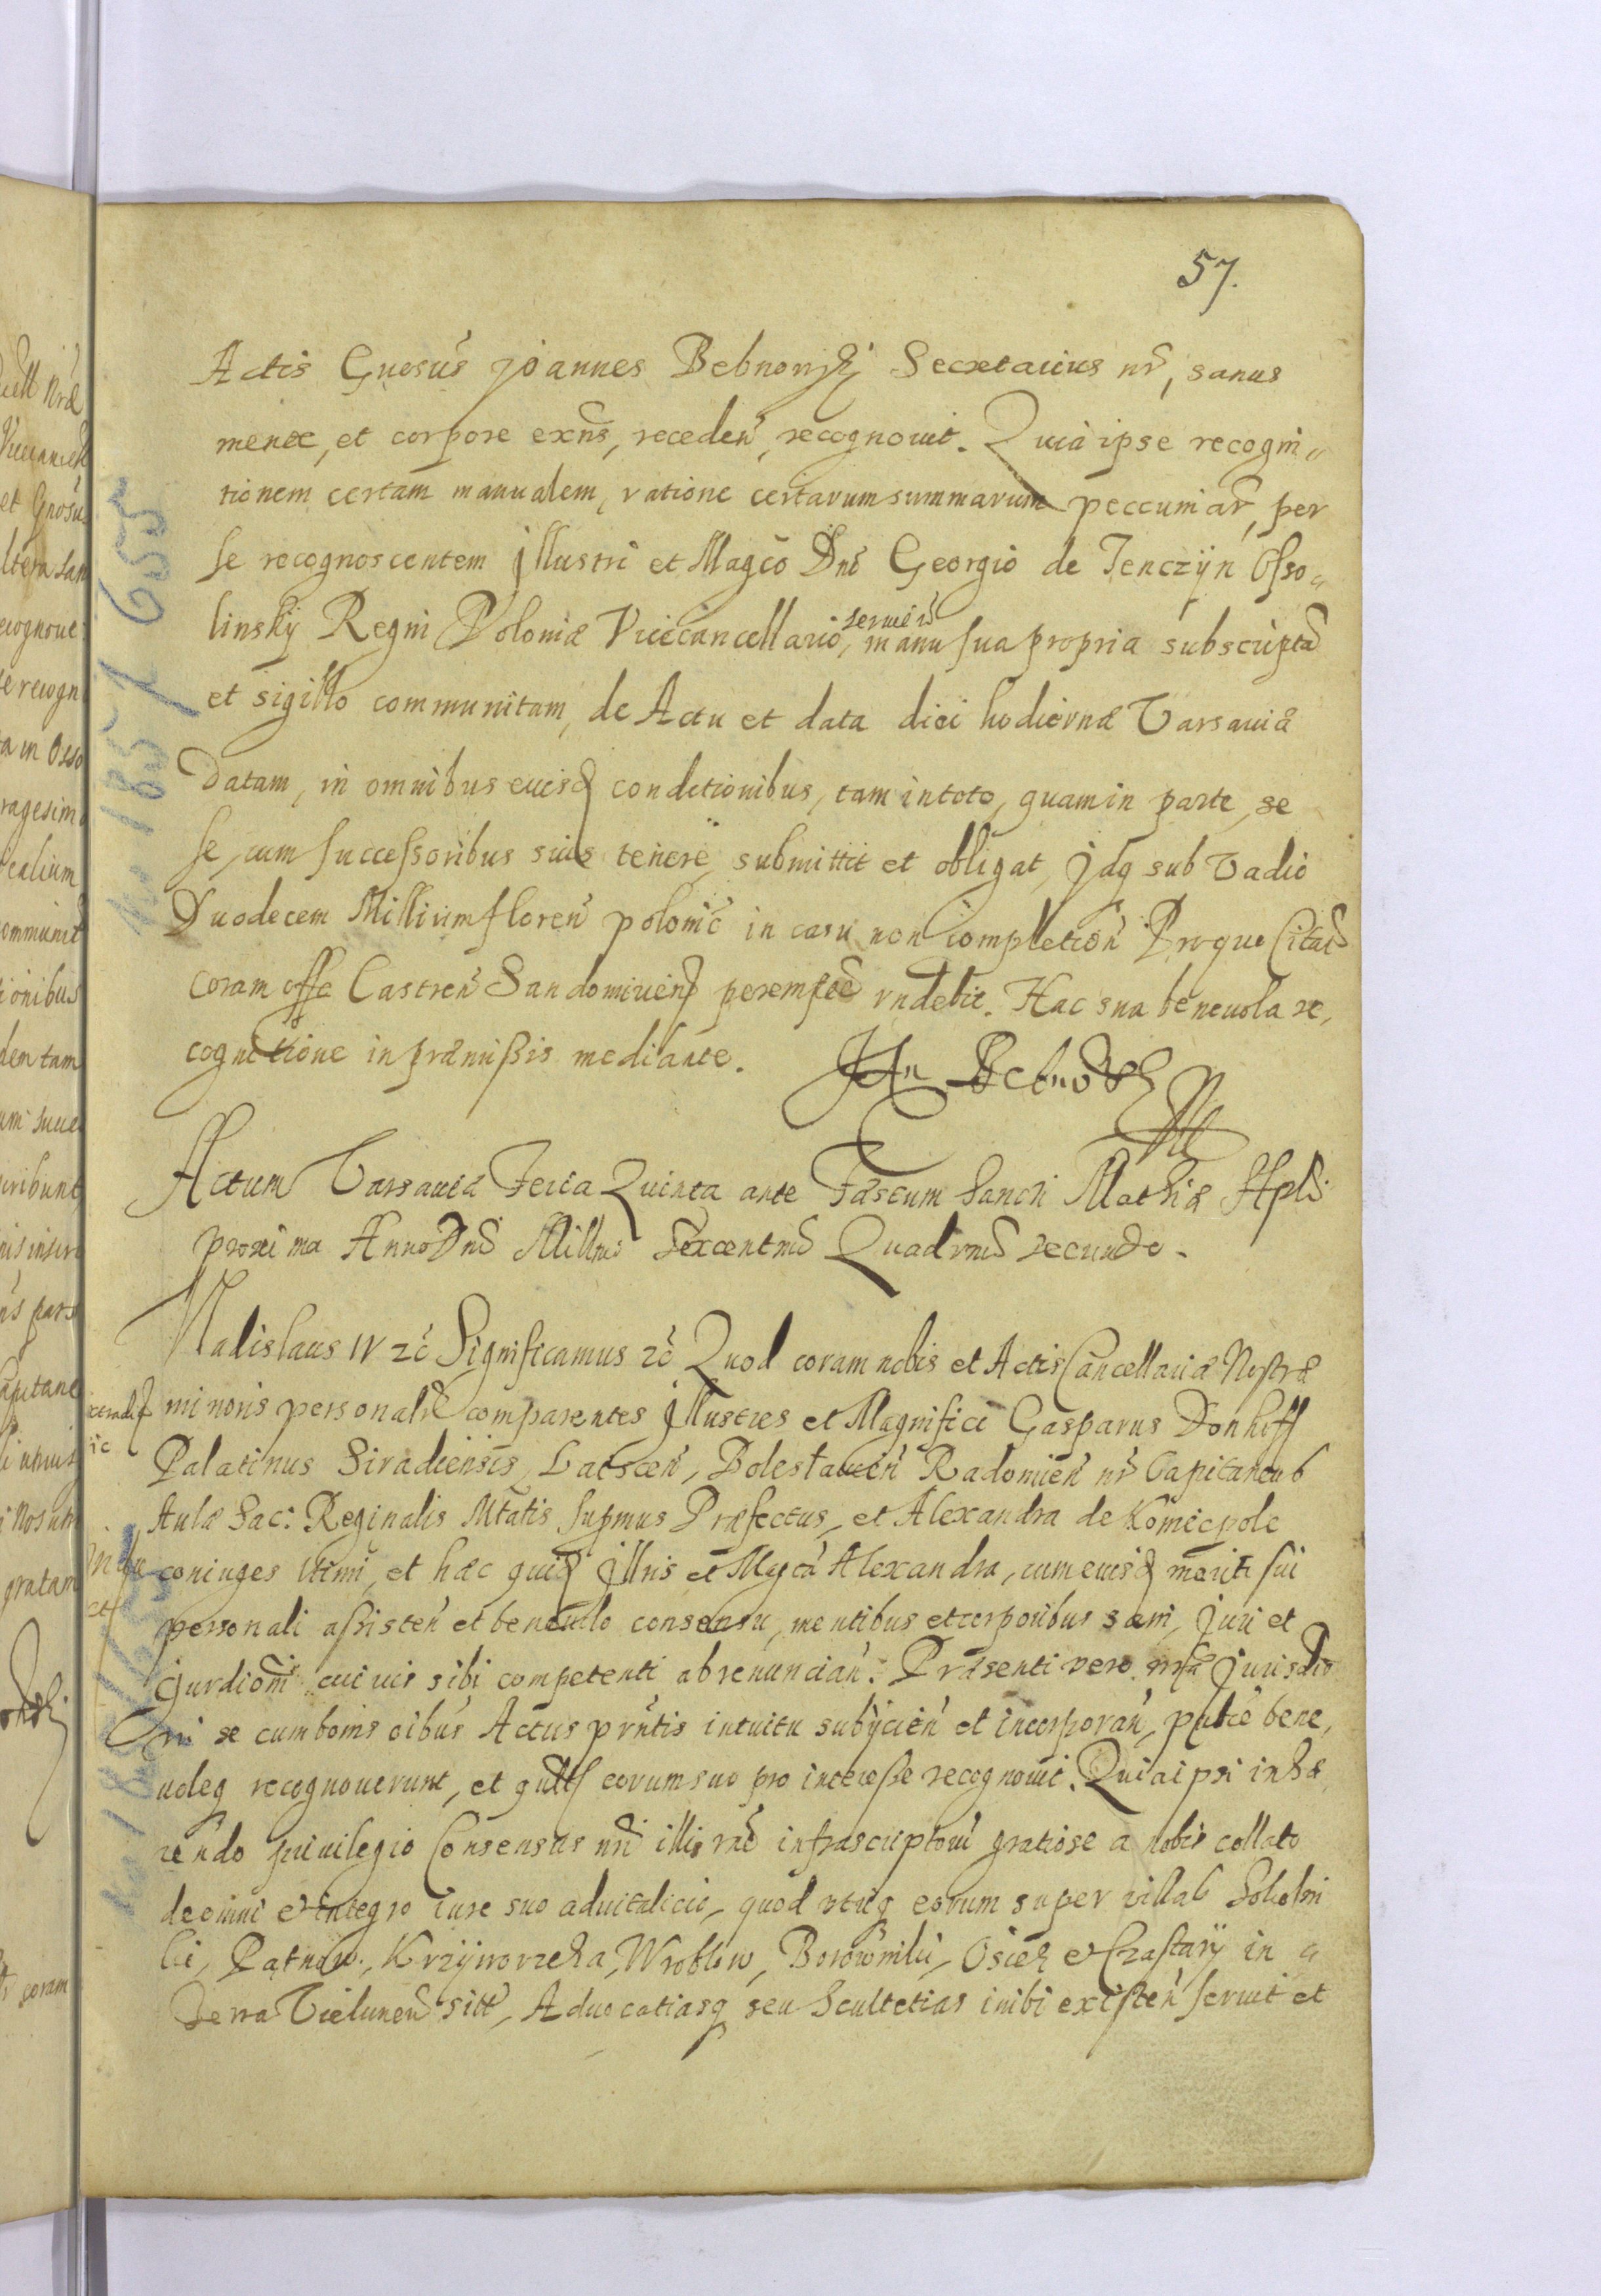 57.
Actis Gnosus Joannes Bebnowski Secretarius nr, sanus
mente, et corpore exns, receden, recognovit. Quia ipse recogni„
tionem certam manualem, ratione certarum summarum peccuniar, per
se recognoscentem Jllustri et Magco Dno Georgio de Tenczÿn Osso„
linskÿ Regni Poloniæ Vicecancellario, servien manu sua propria subscripta
et sigillo communitam, de Actu et data diei hodiernæ Varsaviæ
Datam, in omnibus eiusd conditionibus, tam in toto, quam in parte, se
se, cum successoribus suis tenere submittit et obligat, Jdq sub Vadio
Duodecem Millium floren polonic in casu non completion Pro quo Citat
coram offo Castren Sandomirien peremptoe rndebit. Hac sua benevola re,
cognitione in præmissis mediante. Jan Bebnowski
Actum Varsaviæ Feria Quinta ante Fæstum Sancti Mathiæ Apli
proxima Anno Dni Millmo Sexcentmo Quadrmo secundo.
Vladislaus IV zc Significamus zc Quod coram nobis et Actis Cancellariæ Nostræ
minoris personalr comparentes Jllustres et Magnifici Gasparus Donhoff
Palatinus Siradiensis, Latscen, Boleslavien Radomien nr Capitaneus
Aulæ Sac: Reginalis Mtatis Supmus Præfectus, et Alexandra de Koniecpole
coniuges ltimi, et hæc quid Jllris et Mgca Alexandra, cum eiusd mariti sui
personali assisten et benevolo consensu, mentibus et corporibus sani, Juri et
Jurdioni cuivis sibi competenti abrenuncian. Præsenti vero nræ Jurisdio
ni se cum bonis oibus Actus prntis intuitu subÿcien et incorporan, palce bene,
voleq recognoverunt, et qults eorum suo pro interesse recognovit. Quia ipsi inhæ
rendo privilegio Consensus nri illis rae infrascriptoru gratiose a nobis collato
de omni et integro iure suo advitalicio, quod utrq eorum super villas Sokolni
ki, Patnow, Krzÿworzeka, Wroblow, Borowniki, Osiek et Czastarÿ in
Terra Vielunen sitt, Advocatiasq seu Scultetias inibi existen servit et